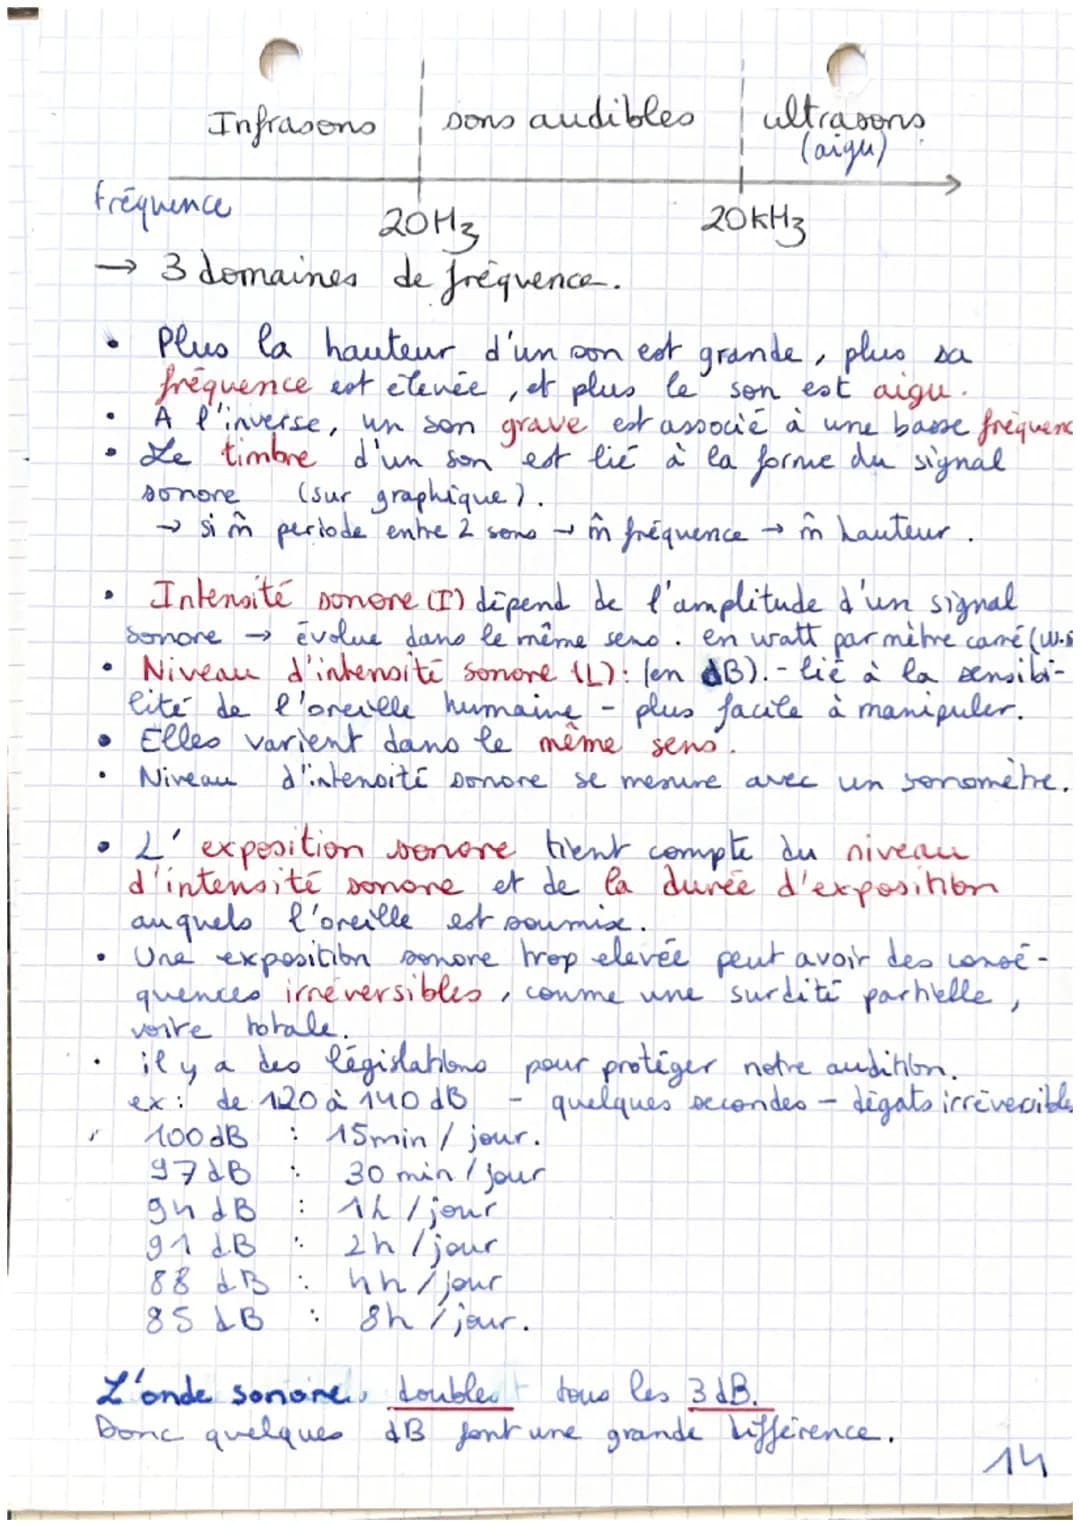 Infrasons sons audibles ultrasons
(aigu)
fréquence 20Hz 20kHz
→ 3 domaines de fréquence.
• Plus la hauteur d'un son est grande, plus sa
fréquence est élevée, et plus le son est aigu.
• A l'inverse, un son grave est associé à une basse fréquenc
• Le timbre d'un son est lié à la forme du signal
sonore (sur graphique).
→ si m̂ periode entre 2 sons → m̂ fréquence → m̂ hauteur.
• Intensité sonore (I) dépend de l'amplitude d'un signal
sonore → évolue dans le même sens. en watt par mètre carré (w.
• Niveau d'intensité sonore (L): (en dB). - lié à la sensibi-
lité de l'oreille humaine - plus facile à manipuler.
• Elles varient dans le même sens.
• Niveau d'intensité sonore se mesure avec un sonomètre.
• L'exposition sonore tient compte du niveau
d'intensité sonore et de la durée d'exposition
auquels l'oreille est soumise.
• Une exposition sonore trop elevée peut avoir des consé-
quences irréversibles, comme une surdité partielle,
voire totale.
• il y a des législations pour protéger notre audition.
ex: de 120 à 140 dB - quelques secondes - dégats irréversible
100 dB : 15min / jour.
97 dB : 30 min / jour
94 dB : 1h / jour
91 dB : 2h / jour
88 dB : 4h / jour
85 dB : 8h / jour.
L'onde sonore double tous les 3 dB.
Donc quelques dB font une grande différence.
14